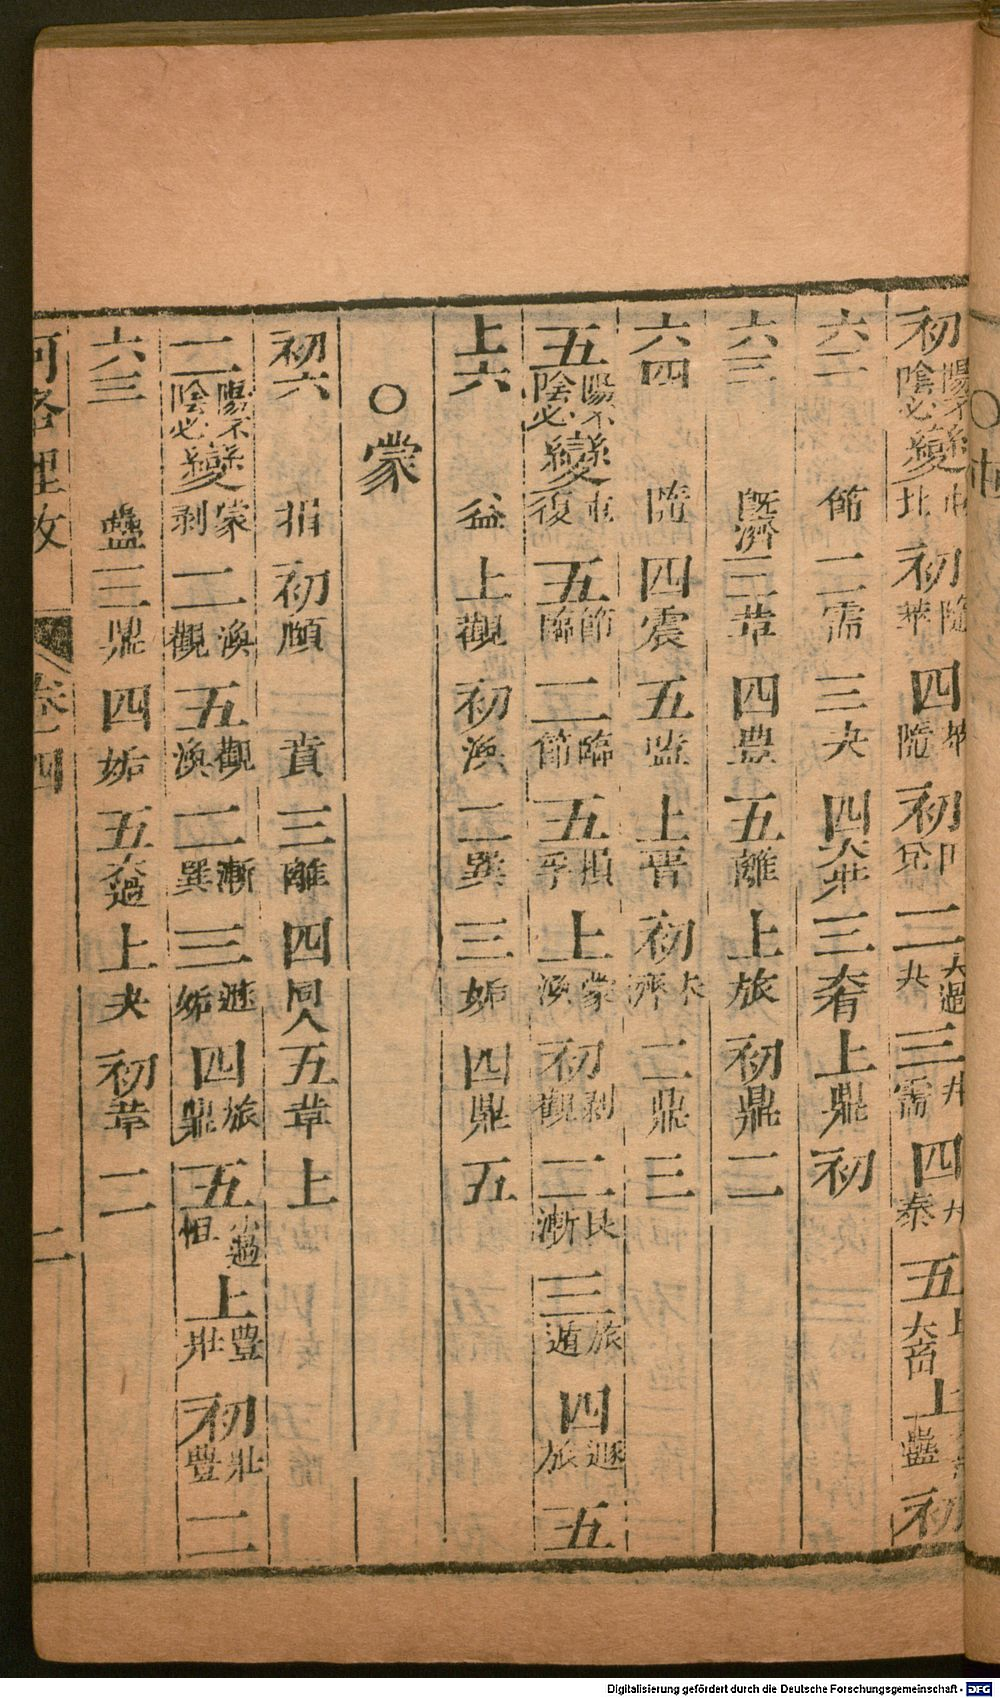 初陽不陰必變屯比初隨萃四萃隨初兌二大過夬三井需四井泰五大畜上蠱初
六二節二需三夬四大壯三大畜上鼎初
六三旣濟三革四豊五離上旅初鼎二
六四隨四震五噬上晋初大有二鼎三
五陽不陰必變屯復五節臨二臨節五損孚上蒙渙初剥觀二艮漸三旅遁四遯旅五
上六益上觀初渙二巽三姤四鼎五
○蒙
初六損初頤二賁三離四同人五革上
二陽不陰必變蒙剥二渙觀五觀渙二漸巽三遯姤四旅鼎五小過恒上豊壯初壯豐二
六三蠱三鼎四姤五大過上夬初革二
河洛理數 卷之四 二
Digitalisierung gefördert durch die Deutsche Forschungsgemeinschaft - DFG